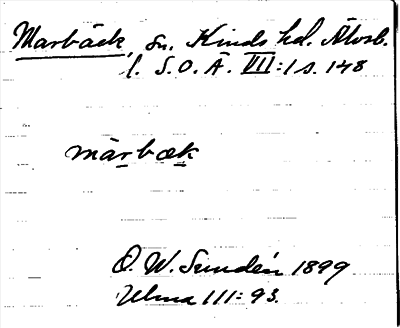 Marbäck, sn. Kinds hd. Älvsb.
l. S.O.Ä. VII:1 s. 148
märbæk
O. W. Sundén 1899
Ulma 111:93.